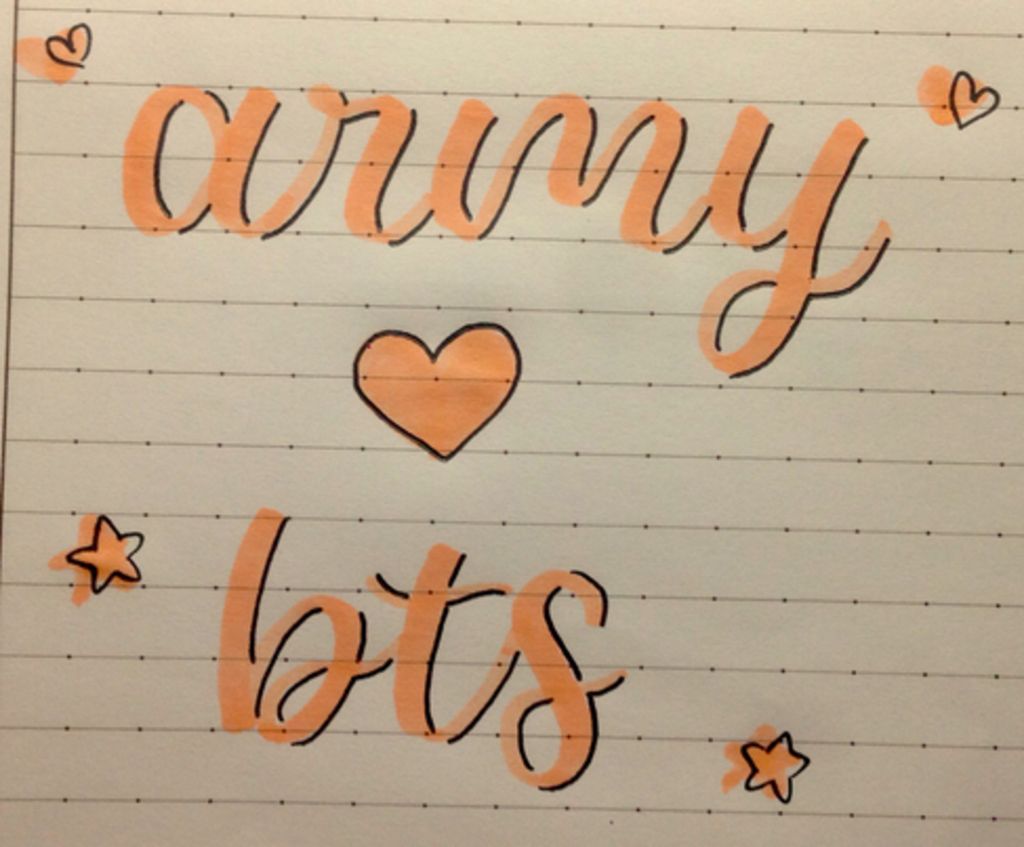 army
bts